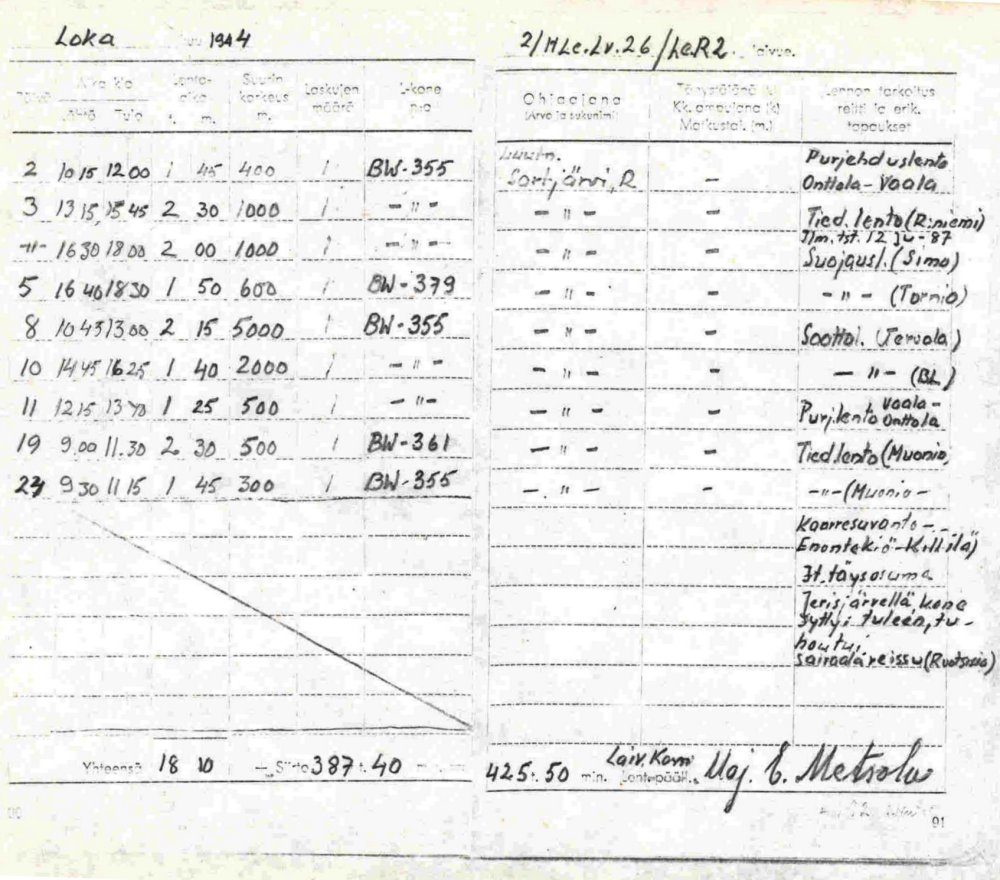 Loka kuu 1944
2/HLe.Lv.26/LeR2. laivue.
Päivä Aika klo Lento-aika Suurin korkeus m. Laskujen määrä L-kone n:o
Lähtö Tulo t. m.
Ohjaajana (Arvo ja sukunimi)
Kk. ampujana (k) Matkustaj. (m.)
Lennon tarkoitus reitti ja erik. tapaukset
2 10 15 12 00 1 45 400 1 BW-355 Luutn. Sartjärvi, R - Purjehduslento Onttola-Vaala
3 13 15 15 45 2 30 1000 1 - " - - " - - Tied. lento (R:niemi) Ilm. tst. 12 Ju-87
-"- 16 30 18 00 2 00 1000 1 - " - - " - - Suojausl. (Simo)
5 16 40 18 30 1 50 600 1 BW-379 - " - - - " - (Tornio)
8 10 43 13 00 2 15 5000 1 BW-355 - " - - Saattol. (Tervola)
10 14 45 16 25 1 40 2000 1 - " - - " - - - " - (BL)
11 12 15 13 40 1 25 500 1 - " - - " - - Purj.lento Vaala-Onttola
19 9.00 11.30 2 30 500 1 BW-361 - " - - Tied.lento (Muonio)
24 9 30 11 15 1 45 300 1 BW-355 - " - - -"- (Muonio -
Kaaresuvanto -
Enontekiö-Kittilä)
It. täysosuma
Jerisjärvellä, kone
syttyi tuleen, tu-
houtui.
(Ruotsissa)
Yhteensä 18 10 Siirto 387 t. 40
425 t. 50 min. Laiv.Kom Lentopääll. Maj. E. Metsola
91